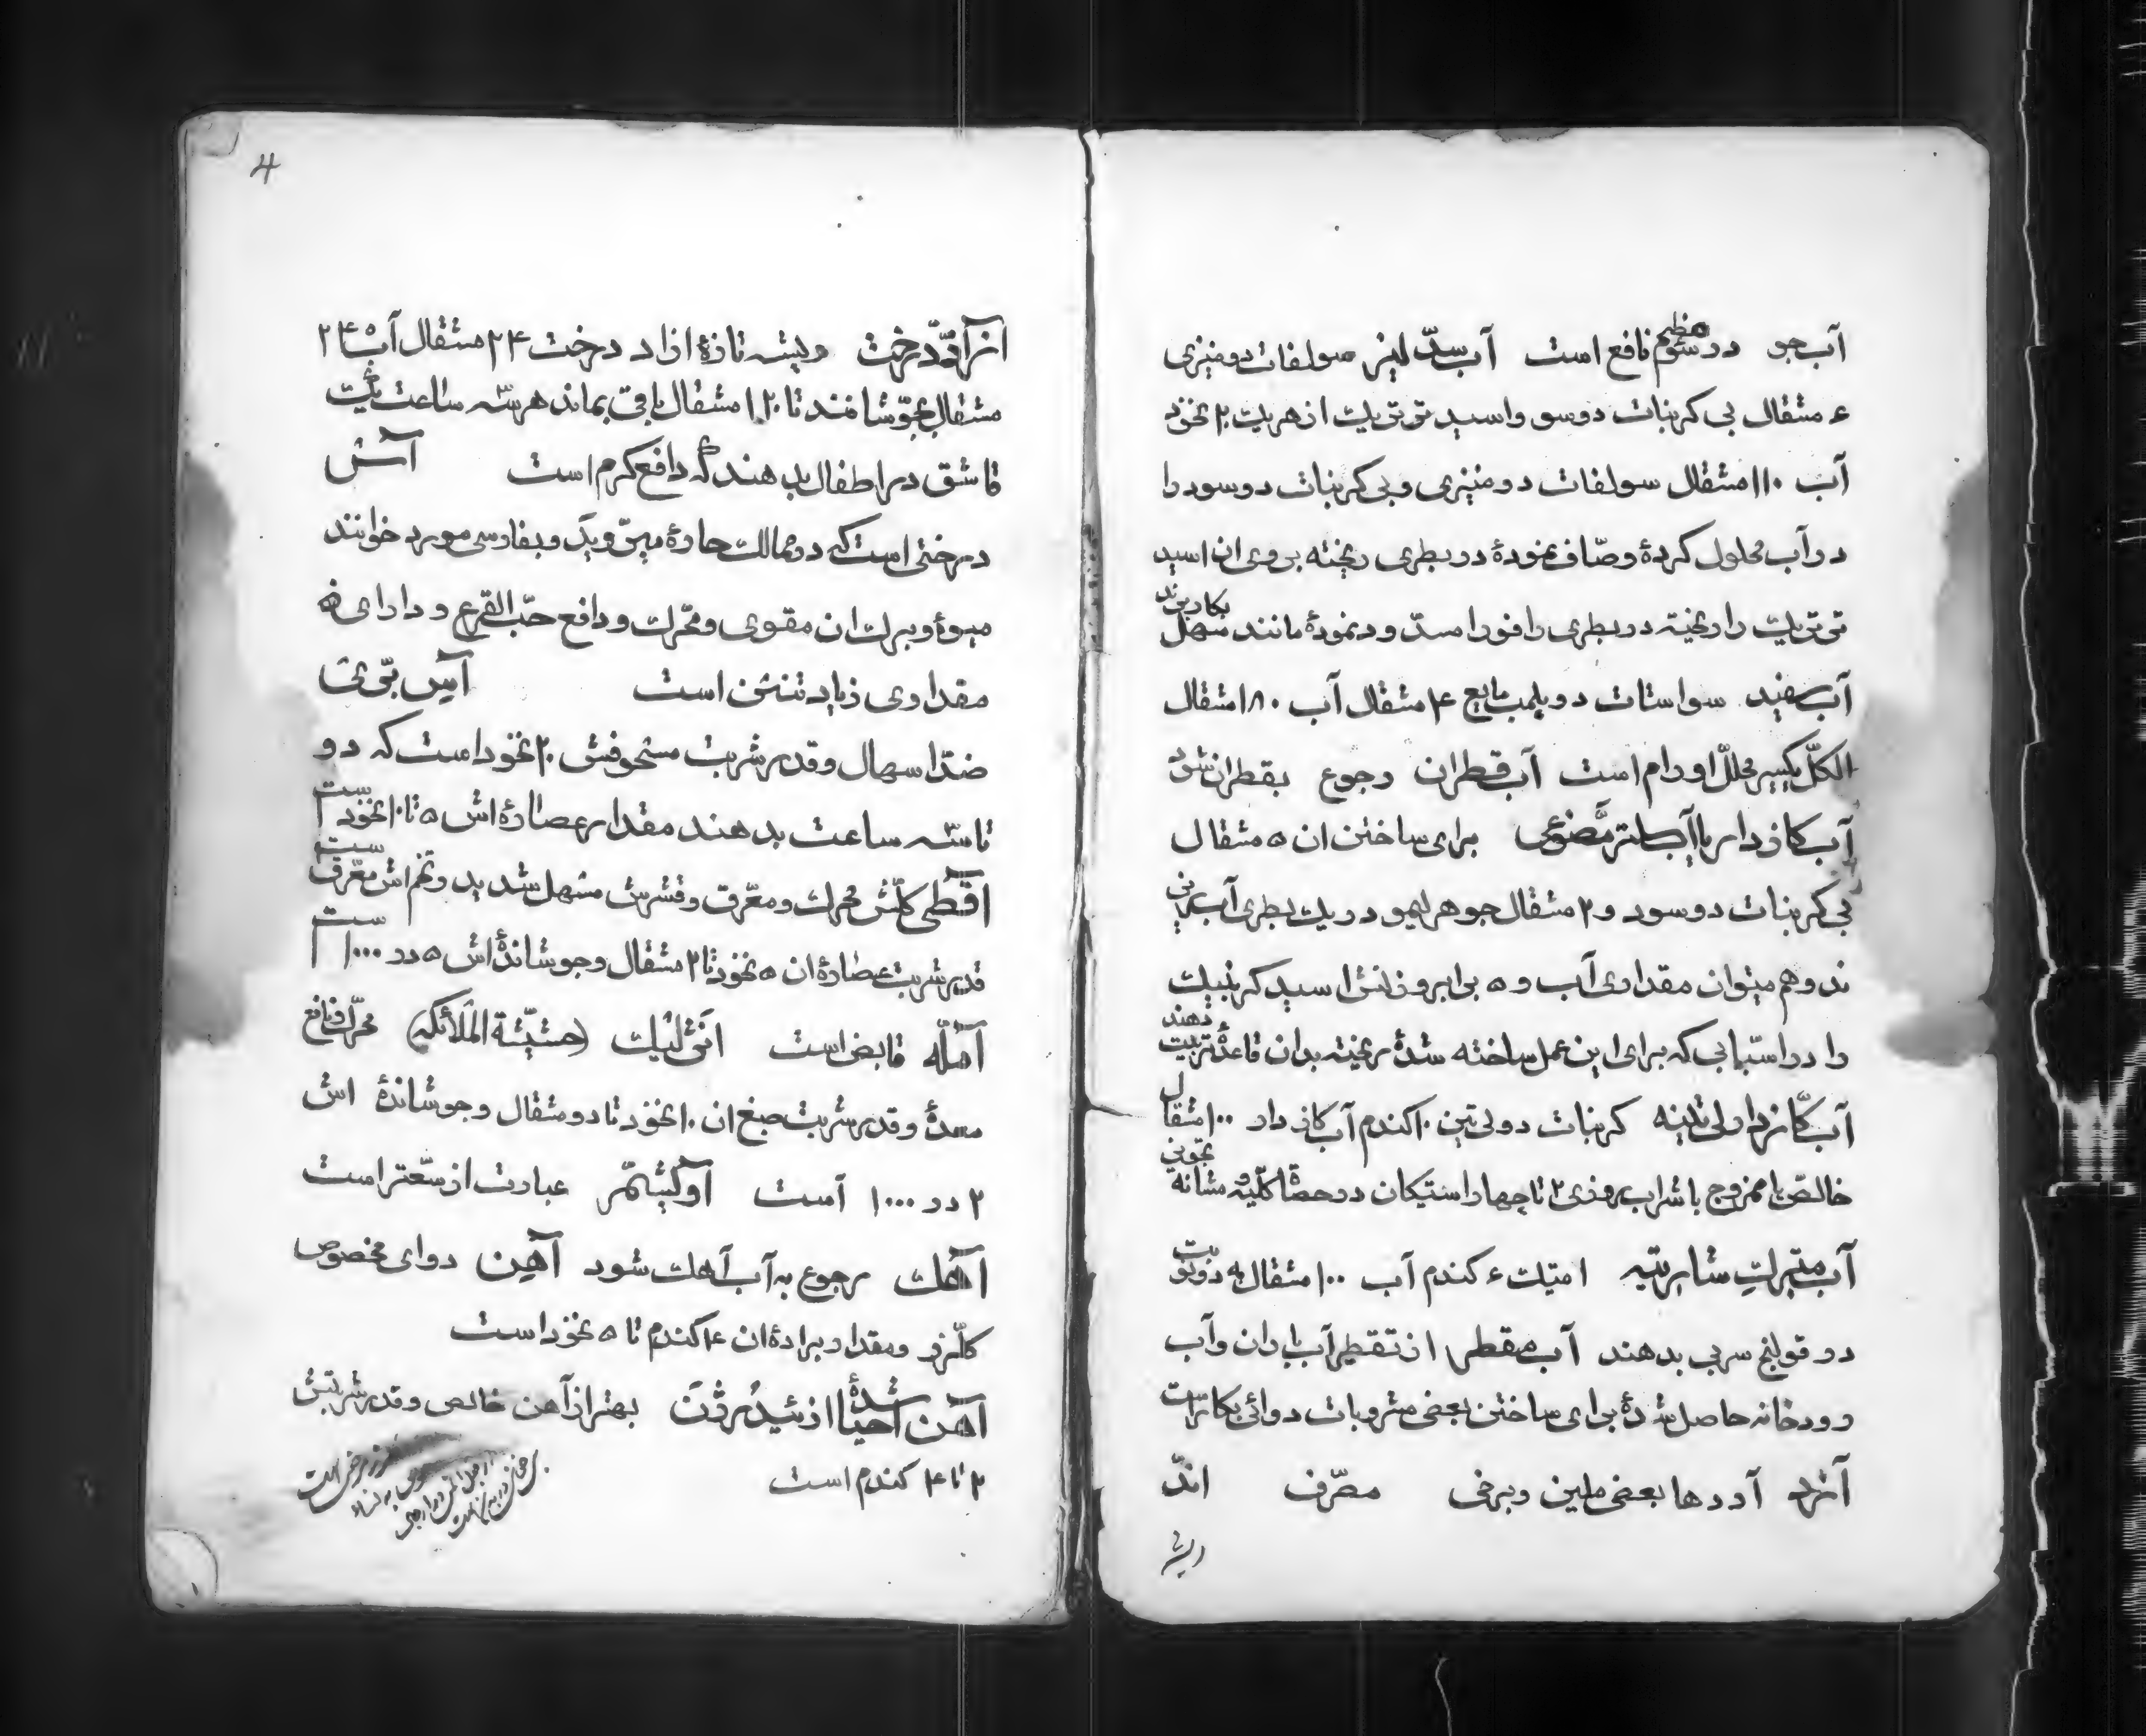 آب جو در سوء هضم نافع است آب سدلیز سولفات دومنیزی
۶ مثقال بی کربنات دوسو واسید تر تریک از هریک ۲۰ نخود
آب ۱۱۰ مثقال سولفات دومنیزی و بی کربنات دوسود را
در آب محلول کرده و صاف نموده در بطری ریخته بروی ان اسید
تر تریک را ریخته در بطری را فورا مسدود نموده مانند مسهل بکار برند
آب سفید سواستات دوپلمب مایع ۴ مثقال آب ۱۸۰ مثقال
الکل یکسیر محلل اورام است آب قطران رجوع بقطران شود
آب کازدار یا آب سلتز مصنوعی برای ساختن ان ۵ مثقال
بی کربنات دوسود و ۴ مثقال جوهر لیمو در یک بطری آب
ند وهم میتوان مقداری آب و ۵ برابر وزنش اسید کربنیک
را در اسبابی که برای این عمل ساخته شده ریخته بدان قاعده ترتیب دهند
آب کازدار لی تینه کربنات دولی تین ۱۰ کندم آب کازدار ۱۰۰ مثقال
خالص یا ممزوج با شراب روزی ۲ تا چهار استیکان در حصاة کلیه و مثانه
آب شاربتیه امتیک ۶ کندم آب ۱۰۰ مثقال به دو نوبت
در قولنج سربی بدهند آب مقطر از تقطیر آب باران وآب
رودخانه حاصل شده برای ساختن بعضی مشروبات دوائی بکار است
آرد آردها بعضی ملین وبرخی مصرف اند
ریشه
4
ازاددرخت ریشه تازهٔ ازاد درخت ۲۴ مثقال آب
مثقال بجوشانند تا ۱۲۰ مثقال باقی بماند هر سه ساعت یک
قاشق در اطفال بدهند که دافع کرم است آس
درختی است که در ممالک حاره میروید وبفارسی مورد خوانند
میوه وبرک ان مقوی ومحرک ودافع حب القرع و دارای
مقداری زیاد تنن است
ضد اسهال وقدر شربت مسحوقش ۲۰ نخود است که دو
تا سه ساعت بدهند مقدار عصاره اش ۵ تا ۱۰ نخود است
اقطی کلش محرک ومعرق وقشرش مسهل شدید وتخم اش معرق است
قدر شربت عصاره ان ۵ نخود تا ۲ مثقال وجوشانده اش ۵ در ۱۰۰۰ است
آمله قابض است انژلیک (حشیشة الملائکه) محرک ونافع
معده وقدر شربت صبغ ان ۱۰ نخود تا دو مثقال وجوشاندهٔ اش
۲ در ۱۰۰۰ است عبارت از سعتر است
آهک رجوع به آب آهک شود آهن دوای مخصوص
کلرز ومقدار براده ان ۴ کندم تا ۵ نخود است
آهن احیا شده از ئیدرژن بهتر از آهن خالص وقدر شربتش
۲ تا ۴ کندم است